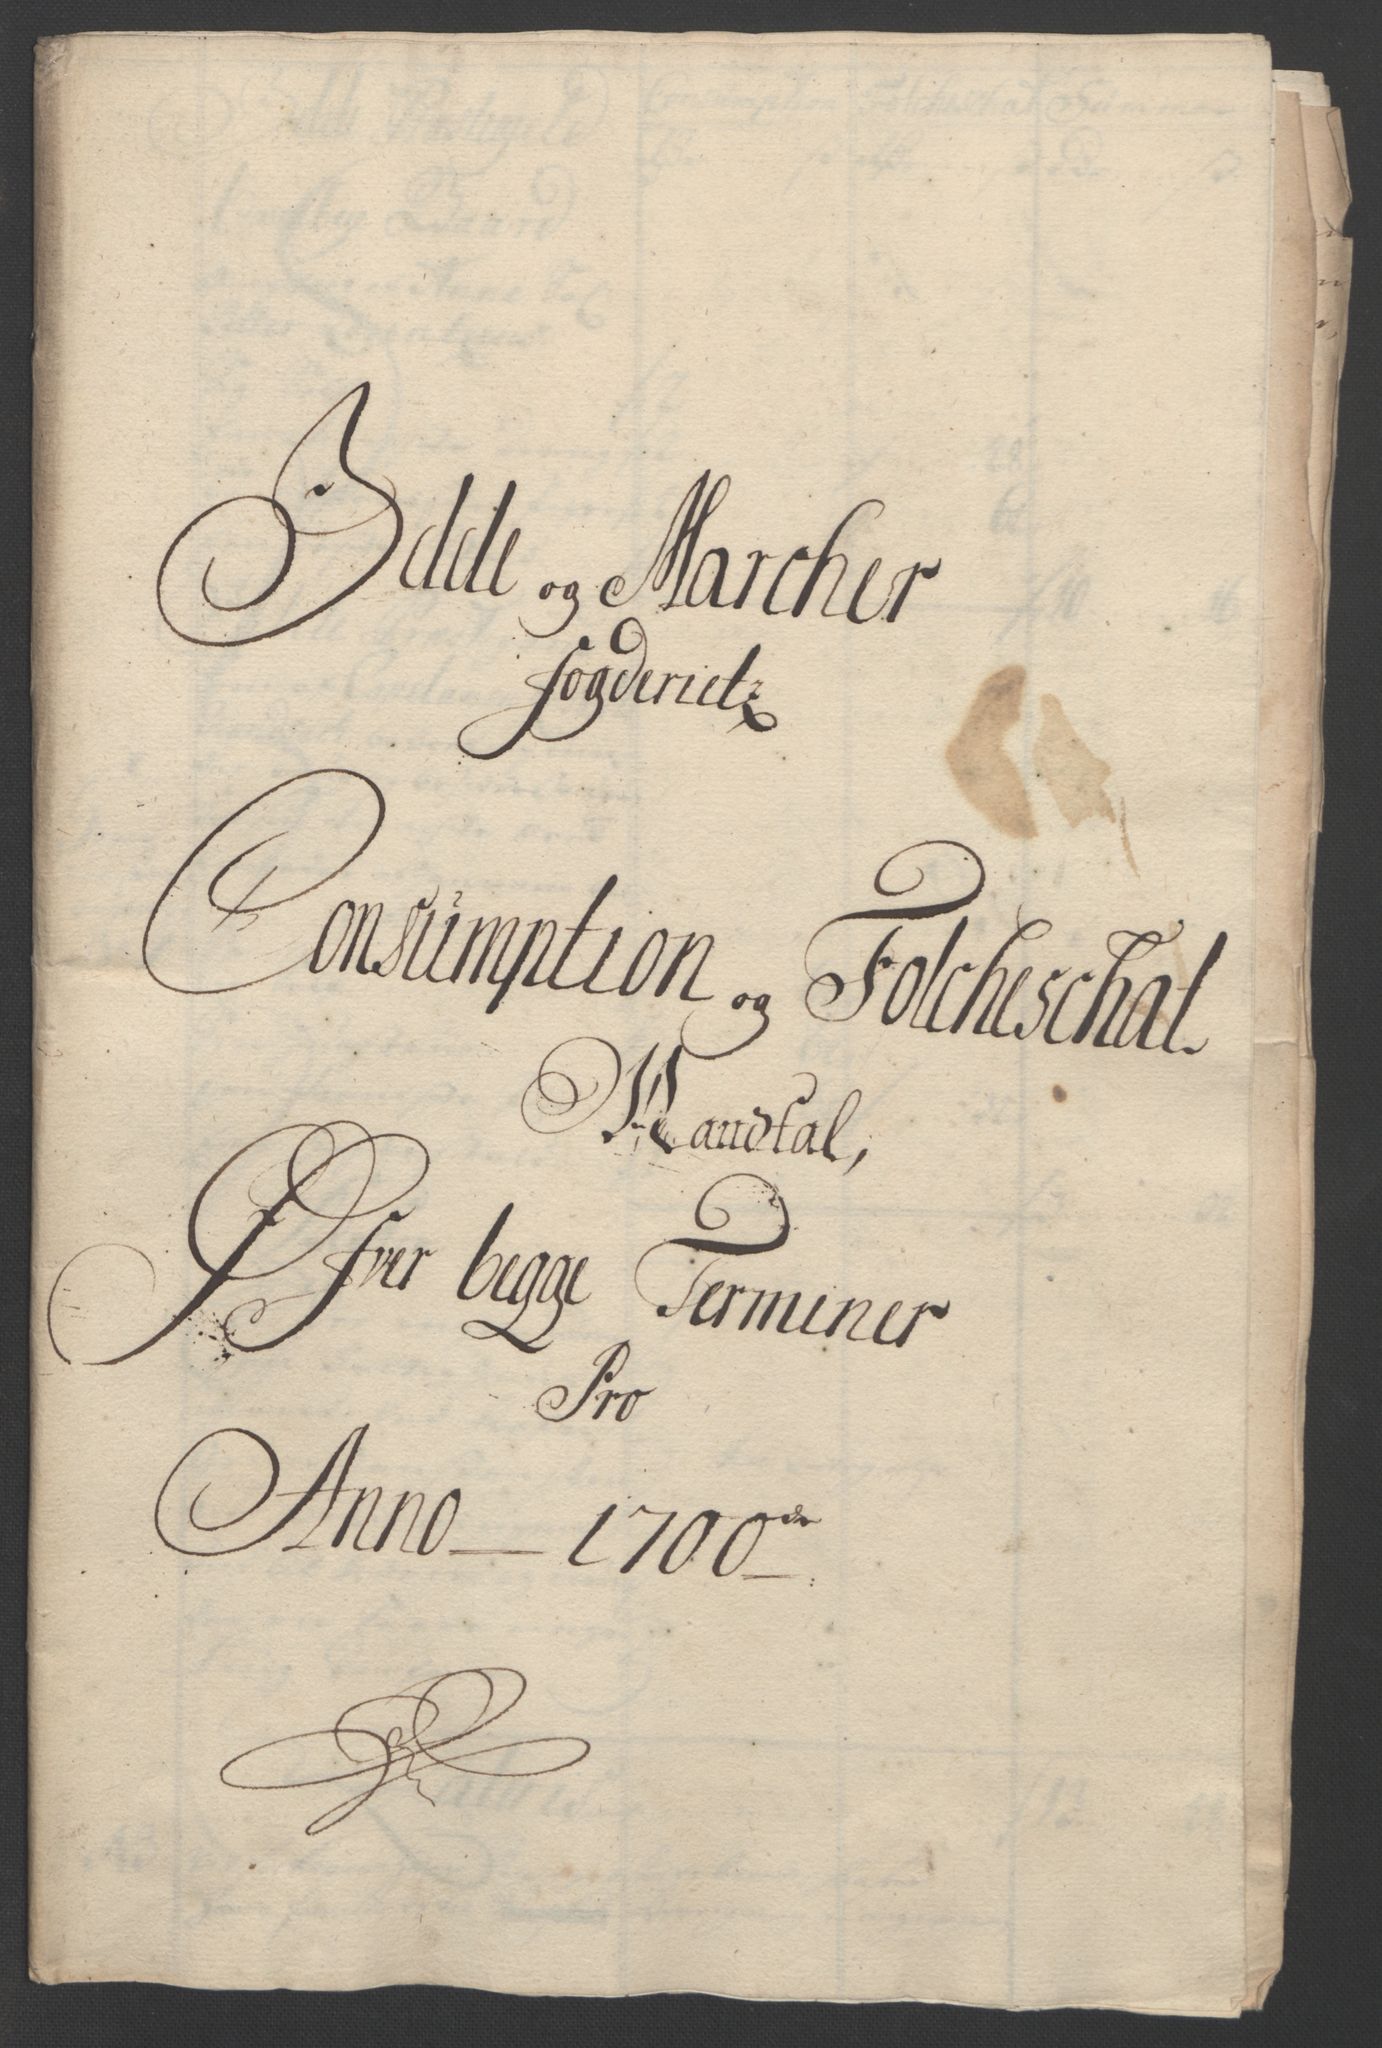 Idde og Marcher
fogderietz
Consumption og Folcheschat
Mandtal,
Øfver begge Terminer
Pro
Anno 1700de